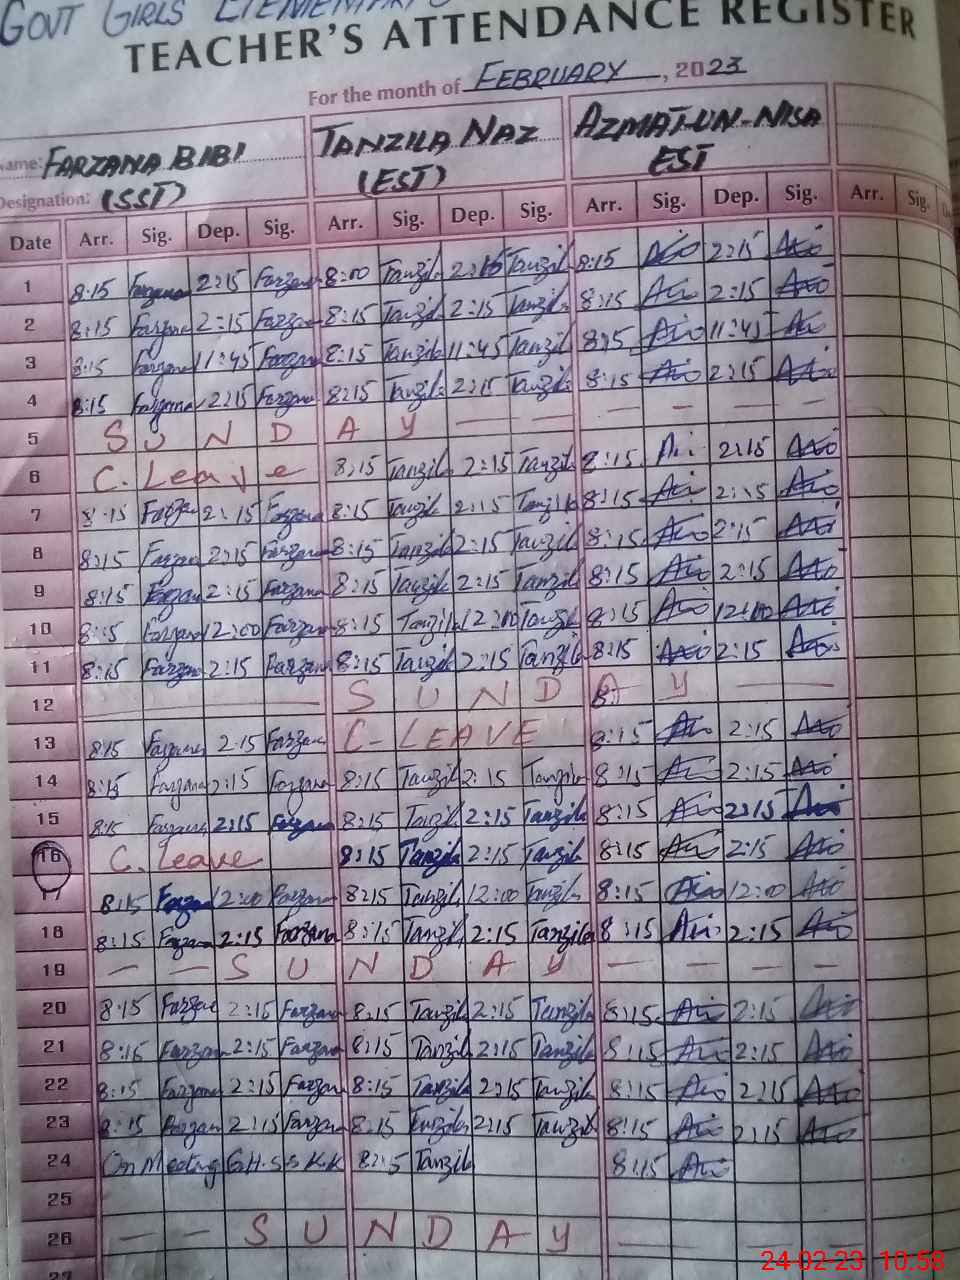 GOVT GIRLS ELEMENTARY
TEACHER'S ATTENDANCE REGISTER
For the month of FEBRUARY, 2023
Name: FARZANA BIBI TANZILA NAZ AZMAT-UN-NISA
Designation: (SST) (EST) EST
Date Arr. Sig. Dep. Sig. Arr. Sig. Dep. Sig. Arr. Sig. Dep. Sig. Arr. Sig.
1 8:15 Farzana 2:15 Farzana 8:00 Tanzila 2:15 Tanzila 8:15 2:15
2 8:15 Farzana 2:15 Farzana 8:15 Tanzila 2:15 Tanzila 8:15 2:15
3 8:15 Farzana 11:45 Farzana 8:15 Tanzila 11:45 Tanzila 8:15 11:45
4 8:15 Farzana 2:15 Farzana 8:15 Tanzila 2:15 Tanzila 8:15 2:15
5 S U N D A Y — — — — — —
6 C. Leave 8:15 Tanzila 2:15 Tanzila 8:15 2:15
7 8:15 Farzana 2:15 Farzana 8:15 Tanzila 2:15 Tanzila 8:15 2:15
8 8:15 Farzana 2:15 Farzana 8:15 Tanzila 2:15 Tanzila 8:15 2:15
9 8:15 Farzana 2:15 Farzana 8:15 Tanzila 2:15 Tanzila 8:15 2:15
10 8:15 Farzana 12:00 Farzana 8:15 Tanzila 12:00 Tanzila 8:15 12:00
11 8:15 Farzana 2:15 Farzana 8:15 Tanzila 2:15 Tanzila 8:15 2:15
12 S U N D A Y — —
13 8:15 Farzana 2:15 Farzana C-LEAVE 8:15 2:15
14 8:15 Farzana 2:15 Farzana 8:15 Tanzila 2:15 Tanzila 8:15 2:15
15 8:15 Farzana 2:15 Farzana 8:15 Tanzila 2:15 Tanzila 8:15 2:15
16 C. Leave 8:15 Tanzila 2:15 Tanzila 8:15 2:15
17 8:15 Farzana 12:00 Farzana 8:15 Tanzila 12:00 Tanzila 8:15 12:00
18 8:15 Farzana 2:15 Farzana 8:15 Tanzila 2:15 Tanzila 8:15 2:15
19 — — S U N D A Y — — — —
20 8:15 Farzana 2:15 Farzana 8:15 Tanzila 2:15 Tanzila 8:15 2:15
21 8:15 Farzana 2:15 Farzana 8:15 Tanzila 2:15 Tanzila 8:15 2:15
22 8:15 Farzana 2:15 Farzana 8:15 Tanzila 2:15 Tanzila 8:15 2:15
23 8:15 Farzana 2:15 Farzana 8:15 Tanzila 2:15 Tanzila 8:15 2:15
24 On Meeting G.H.S.S K.K 8:15 Tanzila 8:15
25
26 — — S U N D A Y — — — —
27
24-02-23 10:58